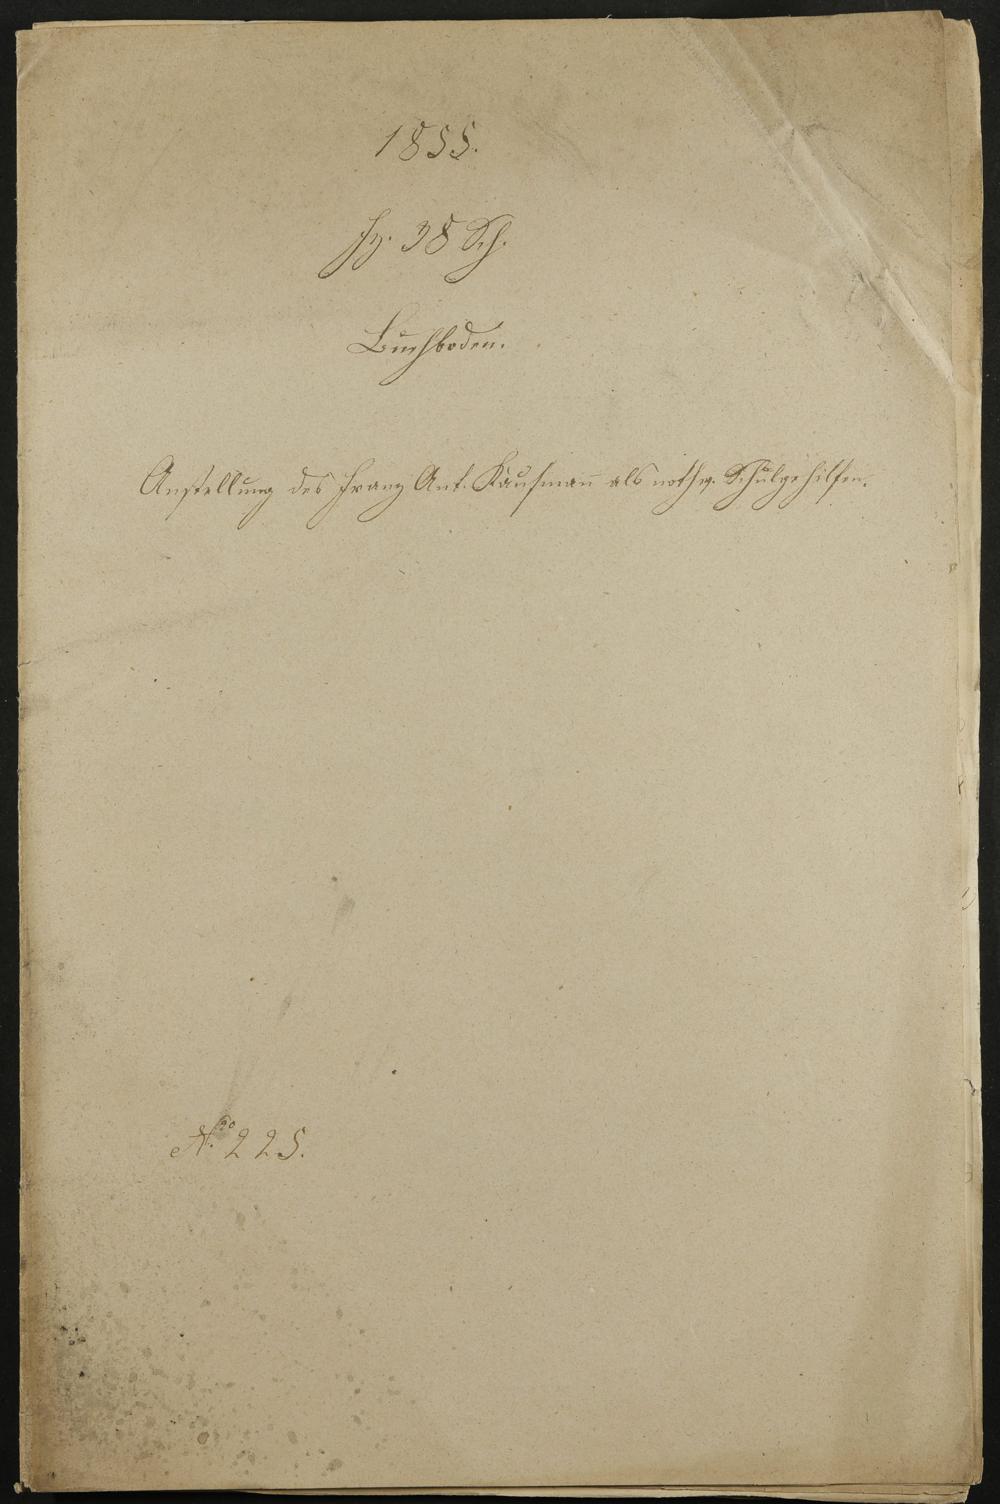 1855.
Fz. 38 Sch.
Buchboden.
Anstellung des Franz Ant. Kaufmañ als nothw. Schulgehilfen.
No 225.